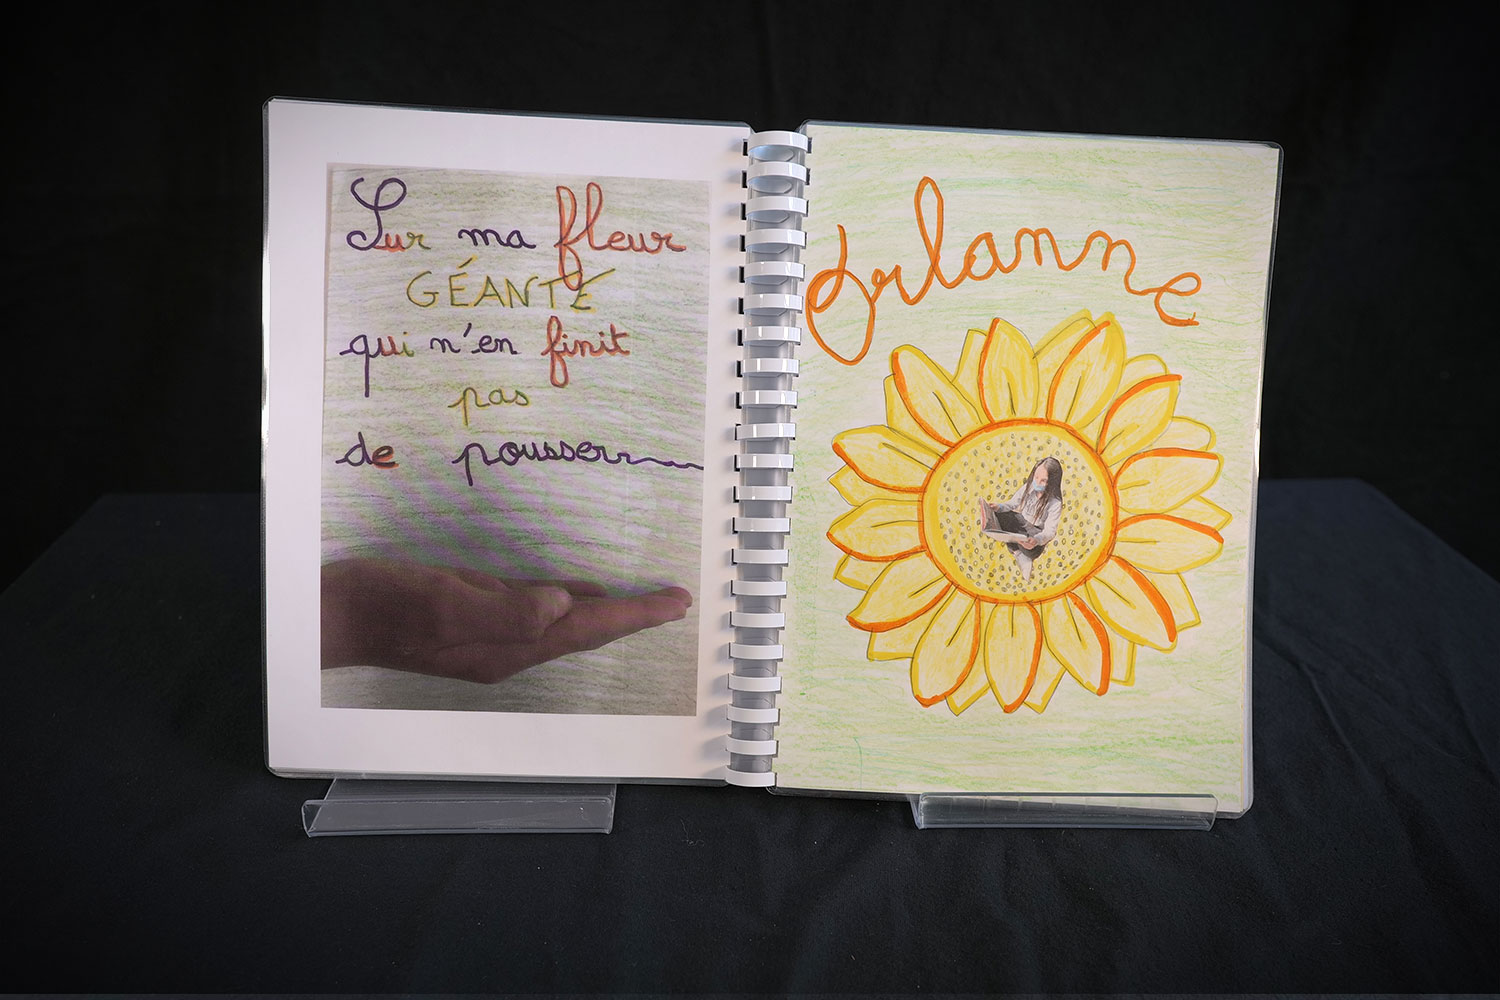 Sur ma fleur
GÉANTE
qui n'en finit
pas
de pousser
Orlanne